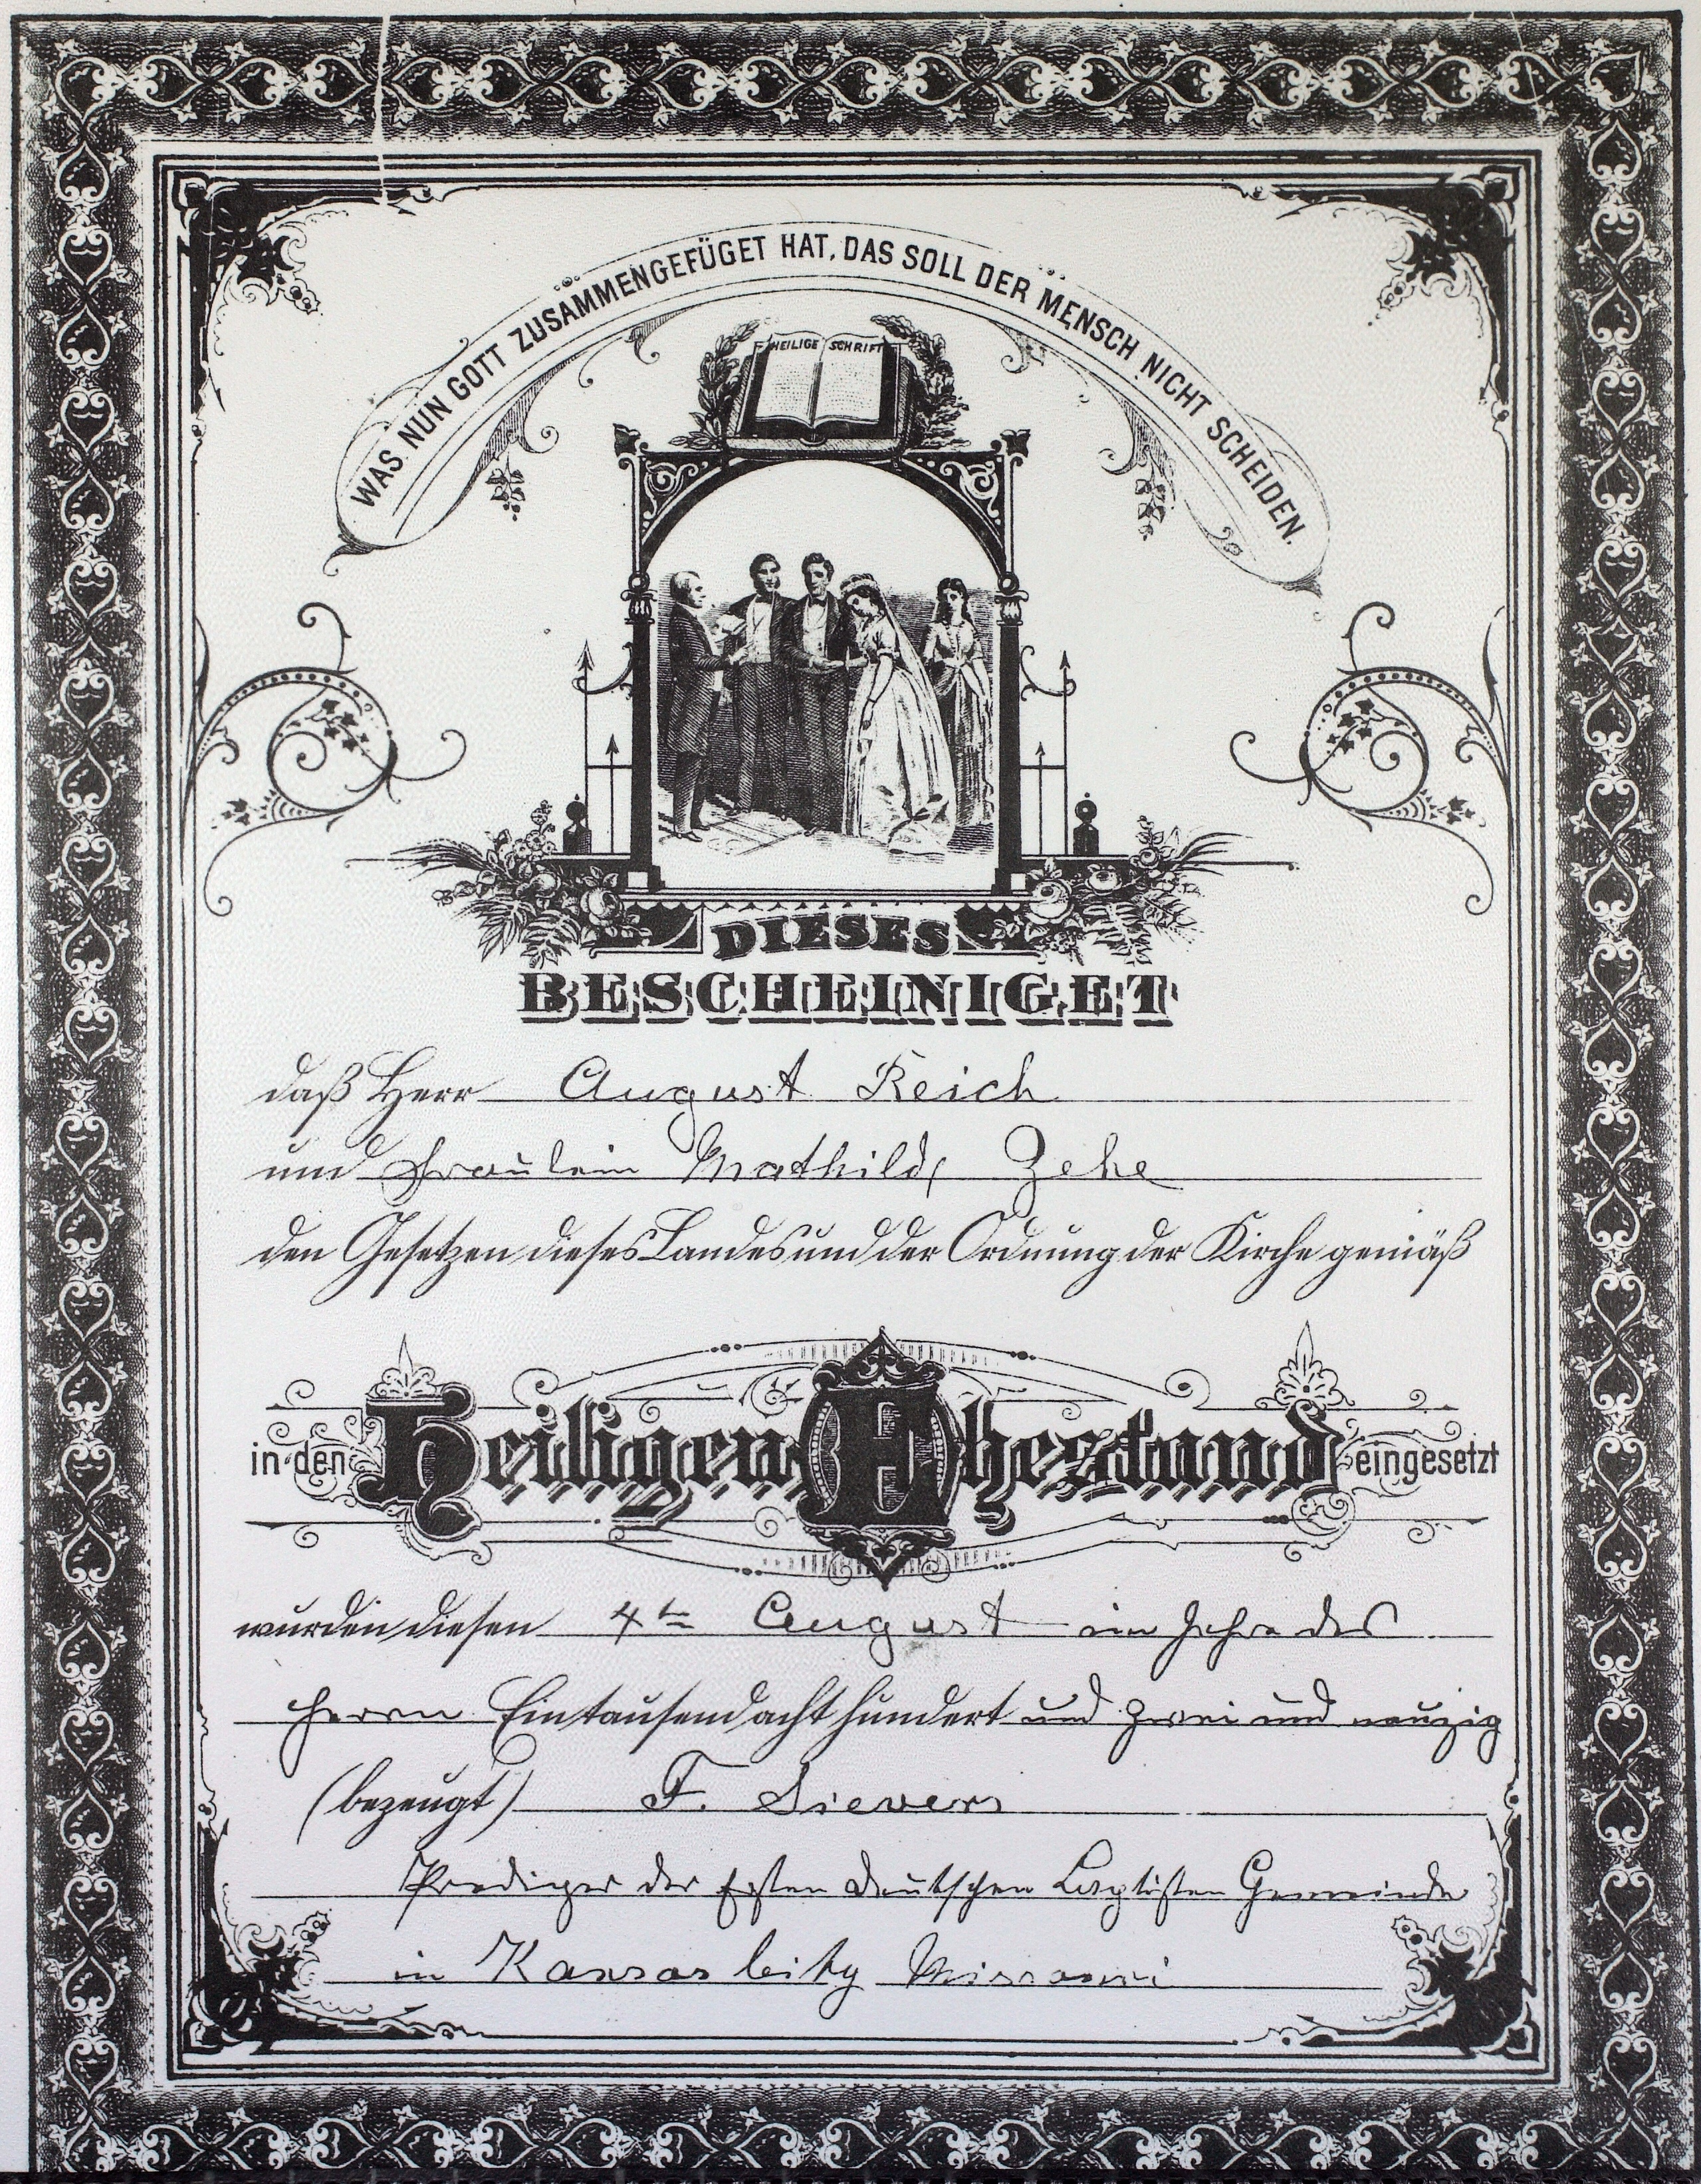 WAS NUN GOTT ZUSAMMENGEFÜGET HAT, DAS SOLL DER MENSCH NICHT SCHEIDEN.
HEILIGE SCHRIFT
DIESES
BESCHEINIGET
daß Herr August Reich
und Fräulein Mathilde Zehe
den Gesetzen dieses Landes und der Ordnung der Kirche gemäß
in den Heiligen Ehestand eingesetzt
wurden diesen 4te August im Jahre des
Herrn Eintausend acht hundert und zwei und neuzig
(bezeugt) F. Sievers
Prediger der Ersten deutschen Baptisten Gemeinde
in Kansas City Missouri